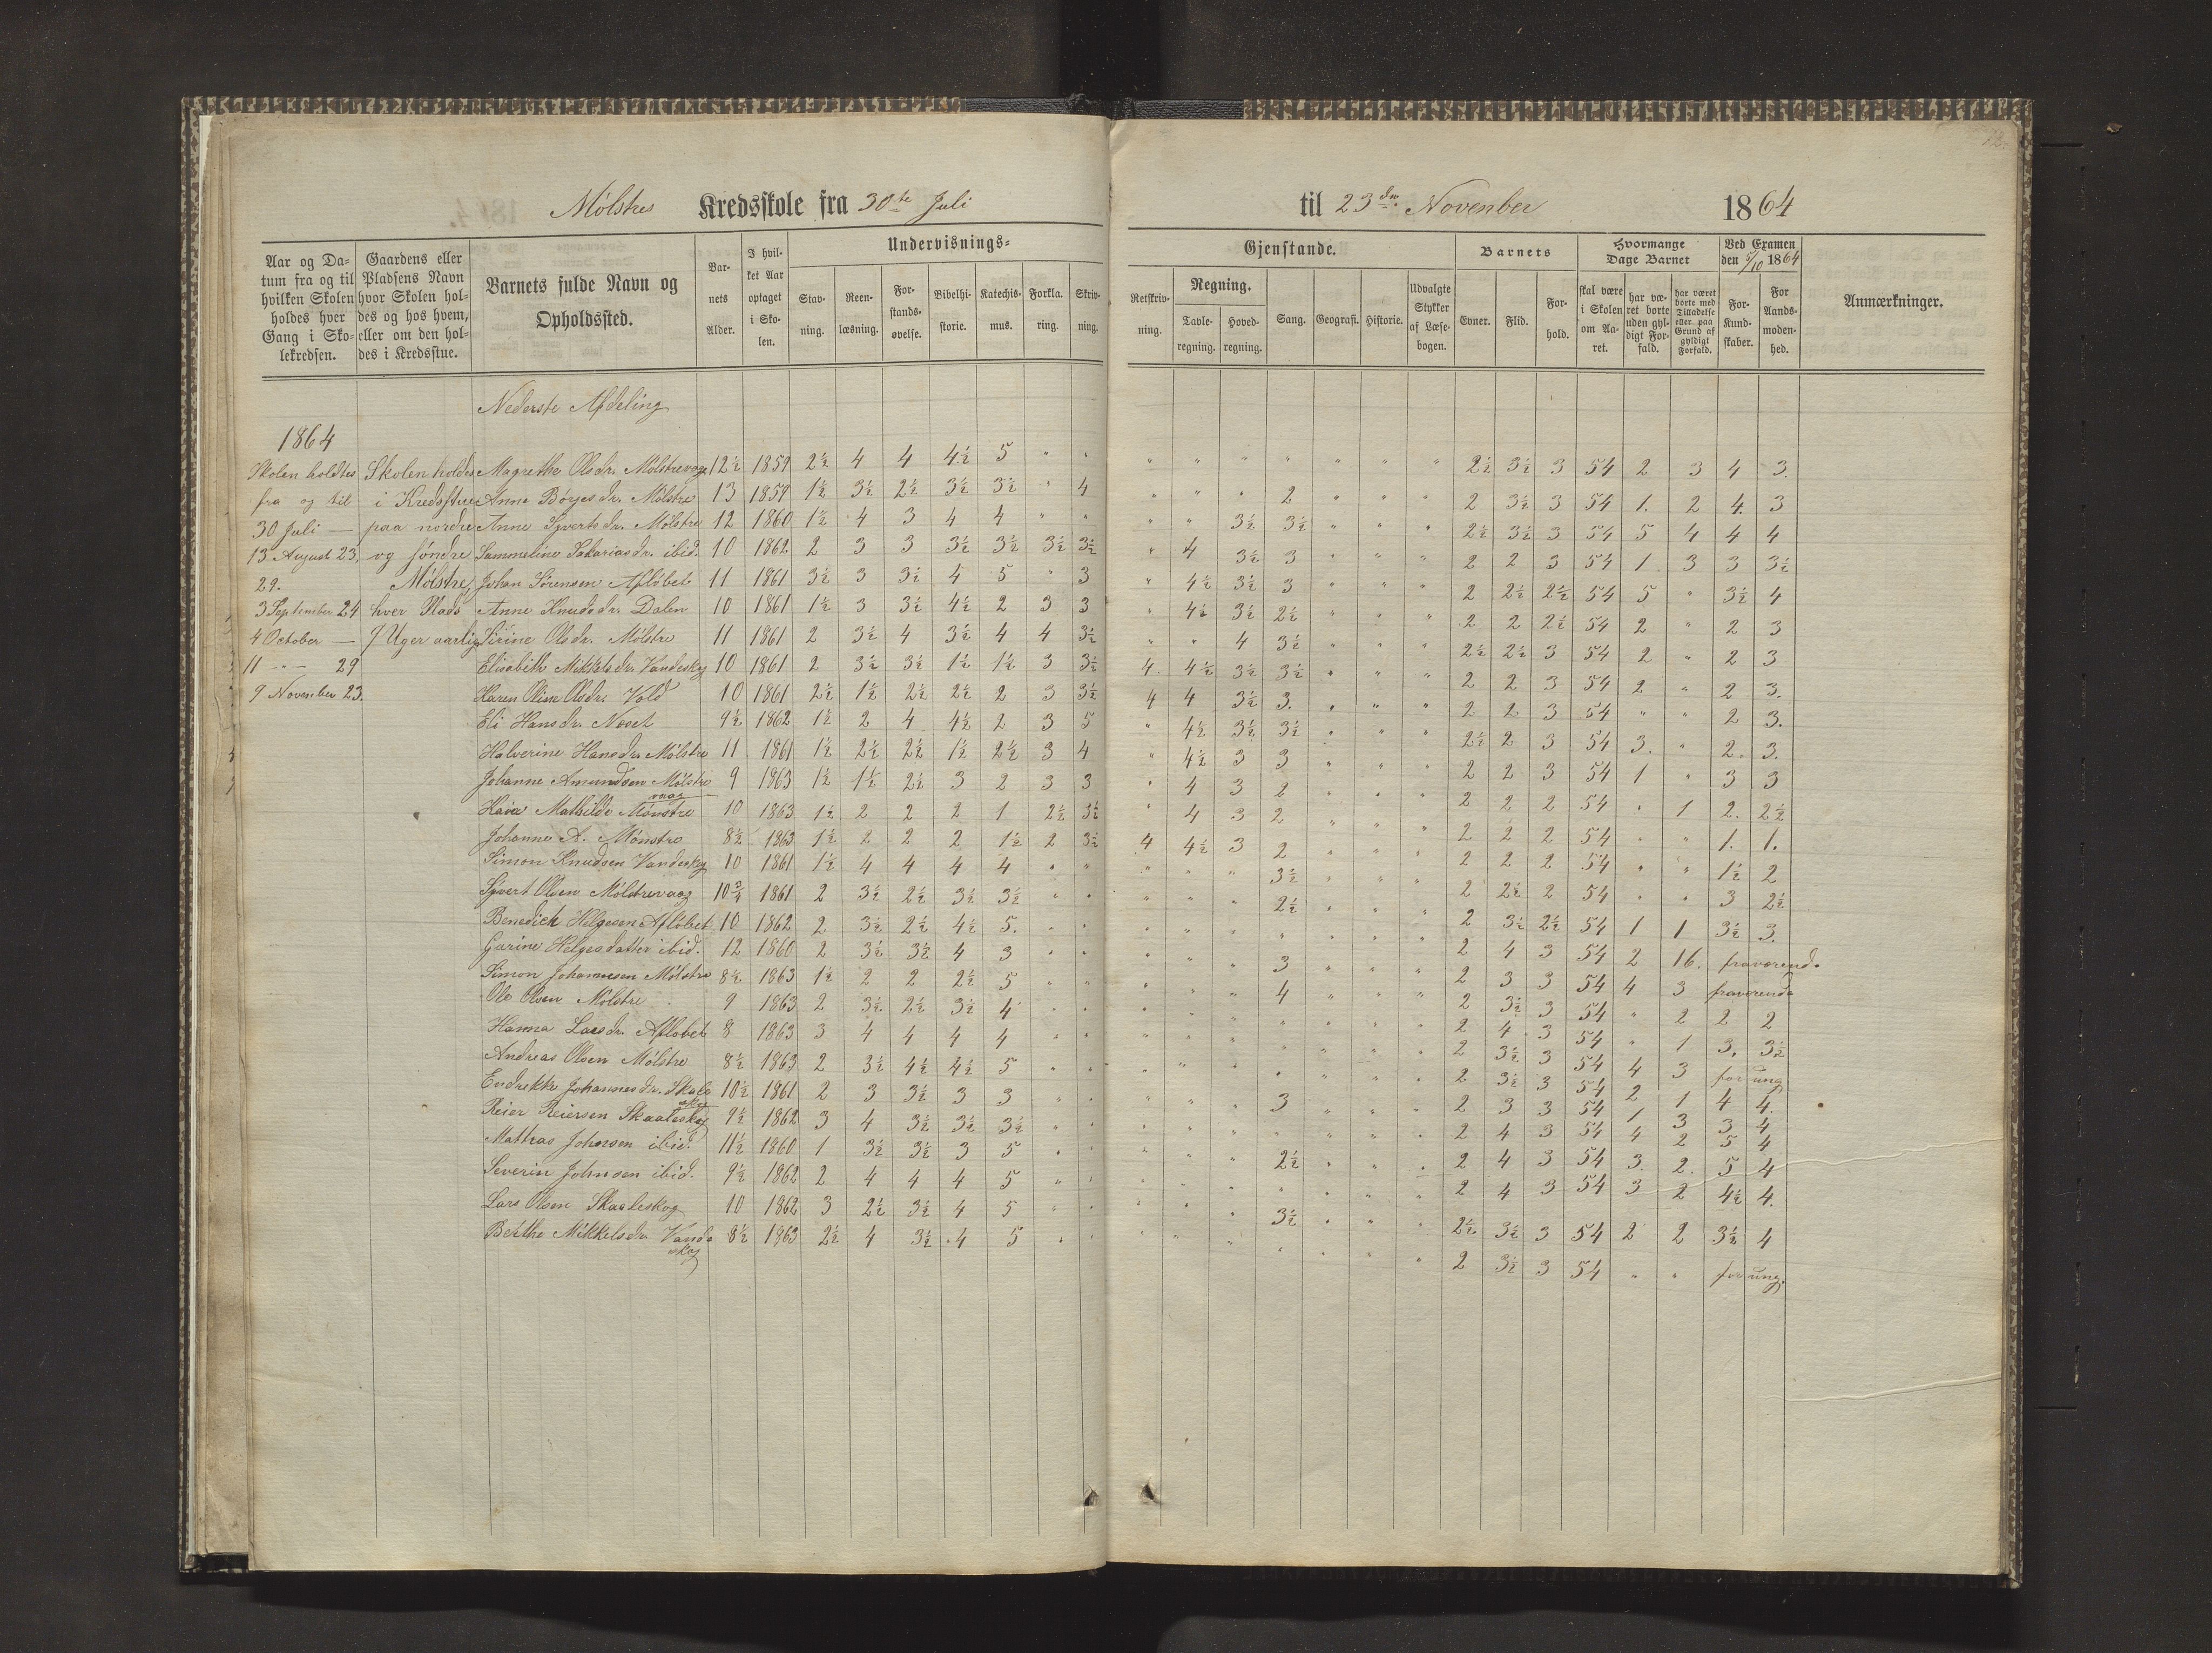 Mølstres Kredsskole fra 30te Juli til 23de November 1864
Aar og Da-
tum fra og til
hvilken Skolen
holdes hver
Gang i Sko-
lekredsen.
Gaardens eller
Pladsens Navn
hvor Skolen hol-
des og hos hvem,
eller om den hol-
des i Kredsstue.
Barnets fulde Navn og
Opholdssted.
Bar-
nets
Alder.
I hvil-
ket Aar
optaget
i Sko-
len.
Undervisnings-
Stav-
ning.
Reen-
læsning.
For-
stands-
øvelse.
Bibelhi-
storie.
Katechis-
mus.
Forkla-
ring.
Skriv-
ning.
Gjenstande.
Retskriv-
ning.
Regning.
Tavle-
regning.
Hoved-
regning.
Sang.
Geografi.
Historie.
Udvalgte
Stykker
af Læse-
bogen.
Barnets
Evner.
Flid.
For-
hold.
Hvormange
Dage Barnet
skal være
i Skolen
om Aa-
ret.
har væ-
ret borte
uden gyl-
digt For-
fald.
har været
borte med
Tilladelse
eller paa
Grund af
gyldigt
Forfald.
Ved Examen
den 5/10 1864
For-
Kund-
skaber.
For
Aands-
moden-
hed.
Anmærkninger.
Nederste Afdeling
1864
Skolen holdtes
fra og til
30 Juli —
13 August 23,
29.
3 September 24
4 October —
11 -"- 29
9 November 23.
Skolen holdes
i Kredsstue
paa nordre
og søndre
Mølstre,
hver Plads
7 Uger aarlig
Magrethe Olsdr. Mølstrevaag 12½ 1859 2½ 4 4 4½ 5 " " " " " " " " " 2½ 3½ 3 54 2 3 4 3.
Anne Børjesdr. Mølstre 13 1859 1½ 3½ 2½ 3½ 3½ " 4 " " " 2 " " " 2 3½ 3 54 1. 2 4. 3
Anne Syvertsdr. Mølstre 12 1860 1½ 4 3 4 4 " " " " 3½ 3½ " " " 2½ 3½ 3 54 5 4 4 4
Sammeline Sakariasdr. ibid. 10 1862 2 3 3 3½ 3½ 3½ 3½ " 4 3½ 3 " " " 2 2 3 54 1 3 3 3½
Johan Sørensen Afløbet 11 1861 3½ 3 3½ 4 5 " 3 " 4½ 3½ 3 " " " 2 2½ 2½ 54 5 " 3½ 4
Anne Knudsdr. Dalen 10 1861 1½ 3 3½ 4½ 2 3 3 " 4½ 3½ 2½ " " " 2 2 2½ 54 2 " 2 3
Sirine Olsdr. Mølstre 11 1861 2 3½ 4 3½ 4 4 3½ " " 4 3½ " " " 2½ 2½ 3 54 2 " 2 3
Elisabeth Mikkelsdr. Vandeskog 10 1861 2 3½ 3½ 1½ 1½ 3 3½ 4 4½ 3½ 3½ " " " 2 2 3 54 2 " 2 3.
Karen Oline Olsdr. Vold 10 1861 2½ 1½ 2½ 2½ 2 3 3½ 4 4 3½ 3. " " " 2 2 3 54 " " 2 3.
Eli Hansdr. Neset 9½ 1862 1½ 2 4 4½ 2 3 5 " 4½ 3½ 3½ " " " 2½ 2 3 54 3. " 2. 3.
Halverine Hansdr. Mølstre 11 1861 1½ 2½ 2½ 1½ 2½ 3 4 " 4½ 3 3 " " " 2 2 3 54 1 " 3 3
Johanne Amundsen Mølstre
vaag 9 1863 1½ 1½ 2½ 3 2 3 3 " 4 3 2 " " " 2 2 2 54 " 1 2. 2½
Mathilde Mønstre 10 1863 1½ 2 2 2 1 2½ 3½ " 4 3 2 " " " 2 2 2 54 " " 1. 1.
Johanne A. Mønstre 8½ 1863 1½ 2 2 2 1½ 2 3½ 4 4½ 3 2 " " " 2 2 2 54 " " 1½ 2
Simon Knudsen Vandeskog 10 1861 1½ 4 4 4 4 " " " " " 3½ " " " 2 2½ 2 54 " " 3 2½
Syvert Olsen Mølstrevaag 10¾ 1861 2 3½ 2½ 3½ 3½ " " " " " 2½ " " " 2 3½ 2½ 54 1 1 3½ 3.
Benedich Helgesen Afløbet 10 1862 2 3½ 2½ 4½ 5. " " " " " " " " " 2 4 3 54 2 16. fraværend.
Gurine Helgesdatter ibid. 12 1860 2 3½ 3½ 4 3 " " " " " 3 " " " 2 3 3 54 4 3 fraværende
Simon Johannesen Mølstre 8½ 1863 1½ 2 2 2½ 5 " " " " " 4 " " " 2 3½ 3 54 " 2 2 2
Ole Olsen Mølstre 9 1863 2 3½ 2½ 3½ 4 " " " " " " " " " 2 4 3 54 " 1 3. 3½
Hanna Larsdr. Afløbet 8 1863 3 4 4 4 4 " " " " " " " " " 2 3½ 3 54 4 3 for ung
Andreas Olsen Mølstre 8½ 1863 2 3½ 4½ 4½ 5 " " " " " " " " " 2 3½ 3 54 2 1 4 4.
Endrekke Johannesdr. Skale
skog 10½ 1861 2 3 3½ 3 3 " " " " " 3 " " " 2 3 3 54 1 3 3 4
Reier Reiersen Skaaleskog 9½ 1862 3 4 3½ 3½ 3½ " " " " " " " " " 2 4 3 54 4 2 5 4
Mathias Johnsen ibid. 11½ 1860 1 3½ 3½ 3 5 " " " " " 2½ " " " 2 4 3 54 3. 2. 5 4
Severin Johnsen ibid. 9½ 1862 2 4 4 4 5 " " " " " " " " " 2 4 3 54 3 2 4½ 4.
Lars Olsen Skaaleskog 10 1862 3 2½ 3½ 4 5 " " " " " 3½ " " " 2½ 3½ 3 54 2 2 3½ 4
Berthe Mikkelsdr. Vande
skog 8½ 1863 2½ 4 3½ 4 5 " " " " " " " " " 2 3½ 3 54 " " for ung.